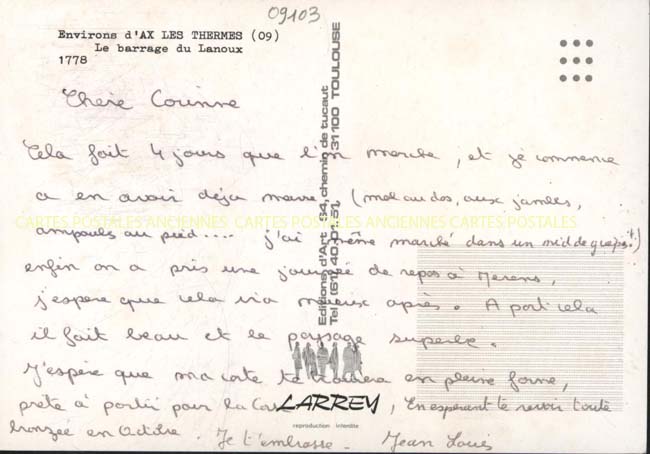 09103
Environs d'AX LES THERMES (09)
Le barrage du Lanoux
1778
Chère Corinne
Cela fait 4 jours que l'on marche, et je commence
a en avoir déja marre (mal au dos, aux jambes,
CARTES POSTALES ANCIENNES CARTES POSTALES ANCIENNES CARTES POSTALES
ampoules au pied.... j'ai même marché dans un nid de guêpes!)
enfin on a pris une journée de repos à Merens,
j'espère que cela ira mieux après. A part cela
il fait beau et le paysage superbe.
J'espère que ma carte te trouvera en pleine forme,
prête à partir pour la, En espérant te revoir toute
bronzée en Octobre. Je t'embrasse - Jean Louis
Editions d'Art 54, chemin de tucaut
Tel. (61) 40.01.51 31100 TOULOUSE
LARREY
reproduction interdite